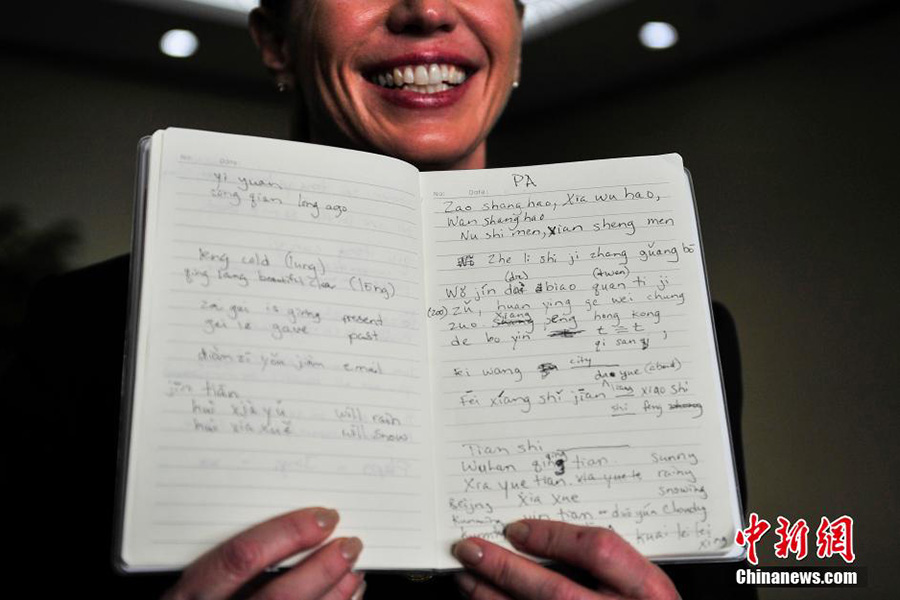 No. Date.
yi yuan
cong qian long ago
leng cold (lung)
qing lang beautiful clear (long)
za gei is giving present
gei le gave past
diàn zǐ yóu jiàn email
jīn tiān
huì xià yǔ will rain
huì xia xuě will snow
No. Date.
PA
Zao shang hao, Xia wu hao,
Wan shang hao
Nu shi men, xian sheng men
Zhe li shi ji zhang guǎng bō
Wǒ jin dai biao quan ti ji
(zoo) zǔ, huan ying ge wei chung
zuo xiang hong kong
de bo yin
qi sang ;
ki wang city
duo yue (about)
Fēi xiáng shí jiān liang xiao shi
shi feng
Tian shi
Wuhan qing tian. sunny
Xia yue tian xia yue le rainy
Beijng xia xue snowing
yin tian = duō yún cloudy
kuai le fei
xing
中新网
Chinanews.com